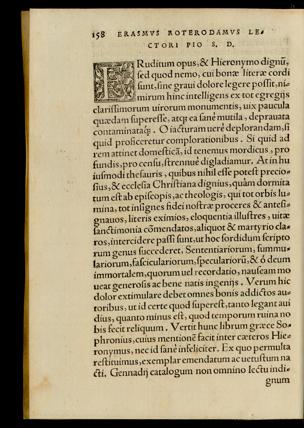 158 ERASMVS ROTERODAMVS LE-
CTORI PIO S. D.
ERuditum opus, & Hieronymo dignũ,
sed quod nemo, cui bonæ literæ cordi
sunt, sine graui dolore legere possit, ni-
mirum hunc intelligens ex tot egregijs
clarissimorum uirorum monumentis, uix paucula
quædam superesse, atq; ea sanè mutila, deprauata
contaminataq;. O iacturam uerè deplorandam, si
quid proficeretur comploratiōnibus. Si quid ad
rem attinet domesticã, id tenemus mordicus, pro
fundis, pro censu, strenuè digladiamur. At in hu
iusmodi thesauris, quibus nihil esse potest precio-
sius, & ecclesia Christiana dignius, quàm dormita
tum est ab episcopis, ac theologis, qui tot orbis lu-
mina, tot insignes fidei nostræ proceres & antesi-
gnauos, literis eximios, eloquentia illustres, uitæ
sanctimonia cõmendatos, aliquot & martyrio cla-
ros, intercidere passi sunt, ut hoc sordidum scripto
rum genus succederet. Sententiariorum, summu-
lariorum, fasciculariorum, speculariorũ, & ô deum
immortalem, quorum uel recordatio, nauseam mo
ueat generosis ac bene natis ingenijs. Verum hic
dolor extimulare debet omnes bonis addictos au-
toribus, ut id certe quod superest, tanto legant aui
dius, quanto minus est, quod temporum ruina no
bis fecit reliquum. Vertit hunc librum græce So-
phronius, cuius mentionē facit inter cæteros Hie-
ronymus, nec id sanè infeliciter. Ex quo permulta
restituimus, exemplar emendatum ac uetustum na
cti. Gennadij catalogum non omnino lectu indi-
gnum